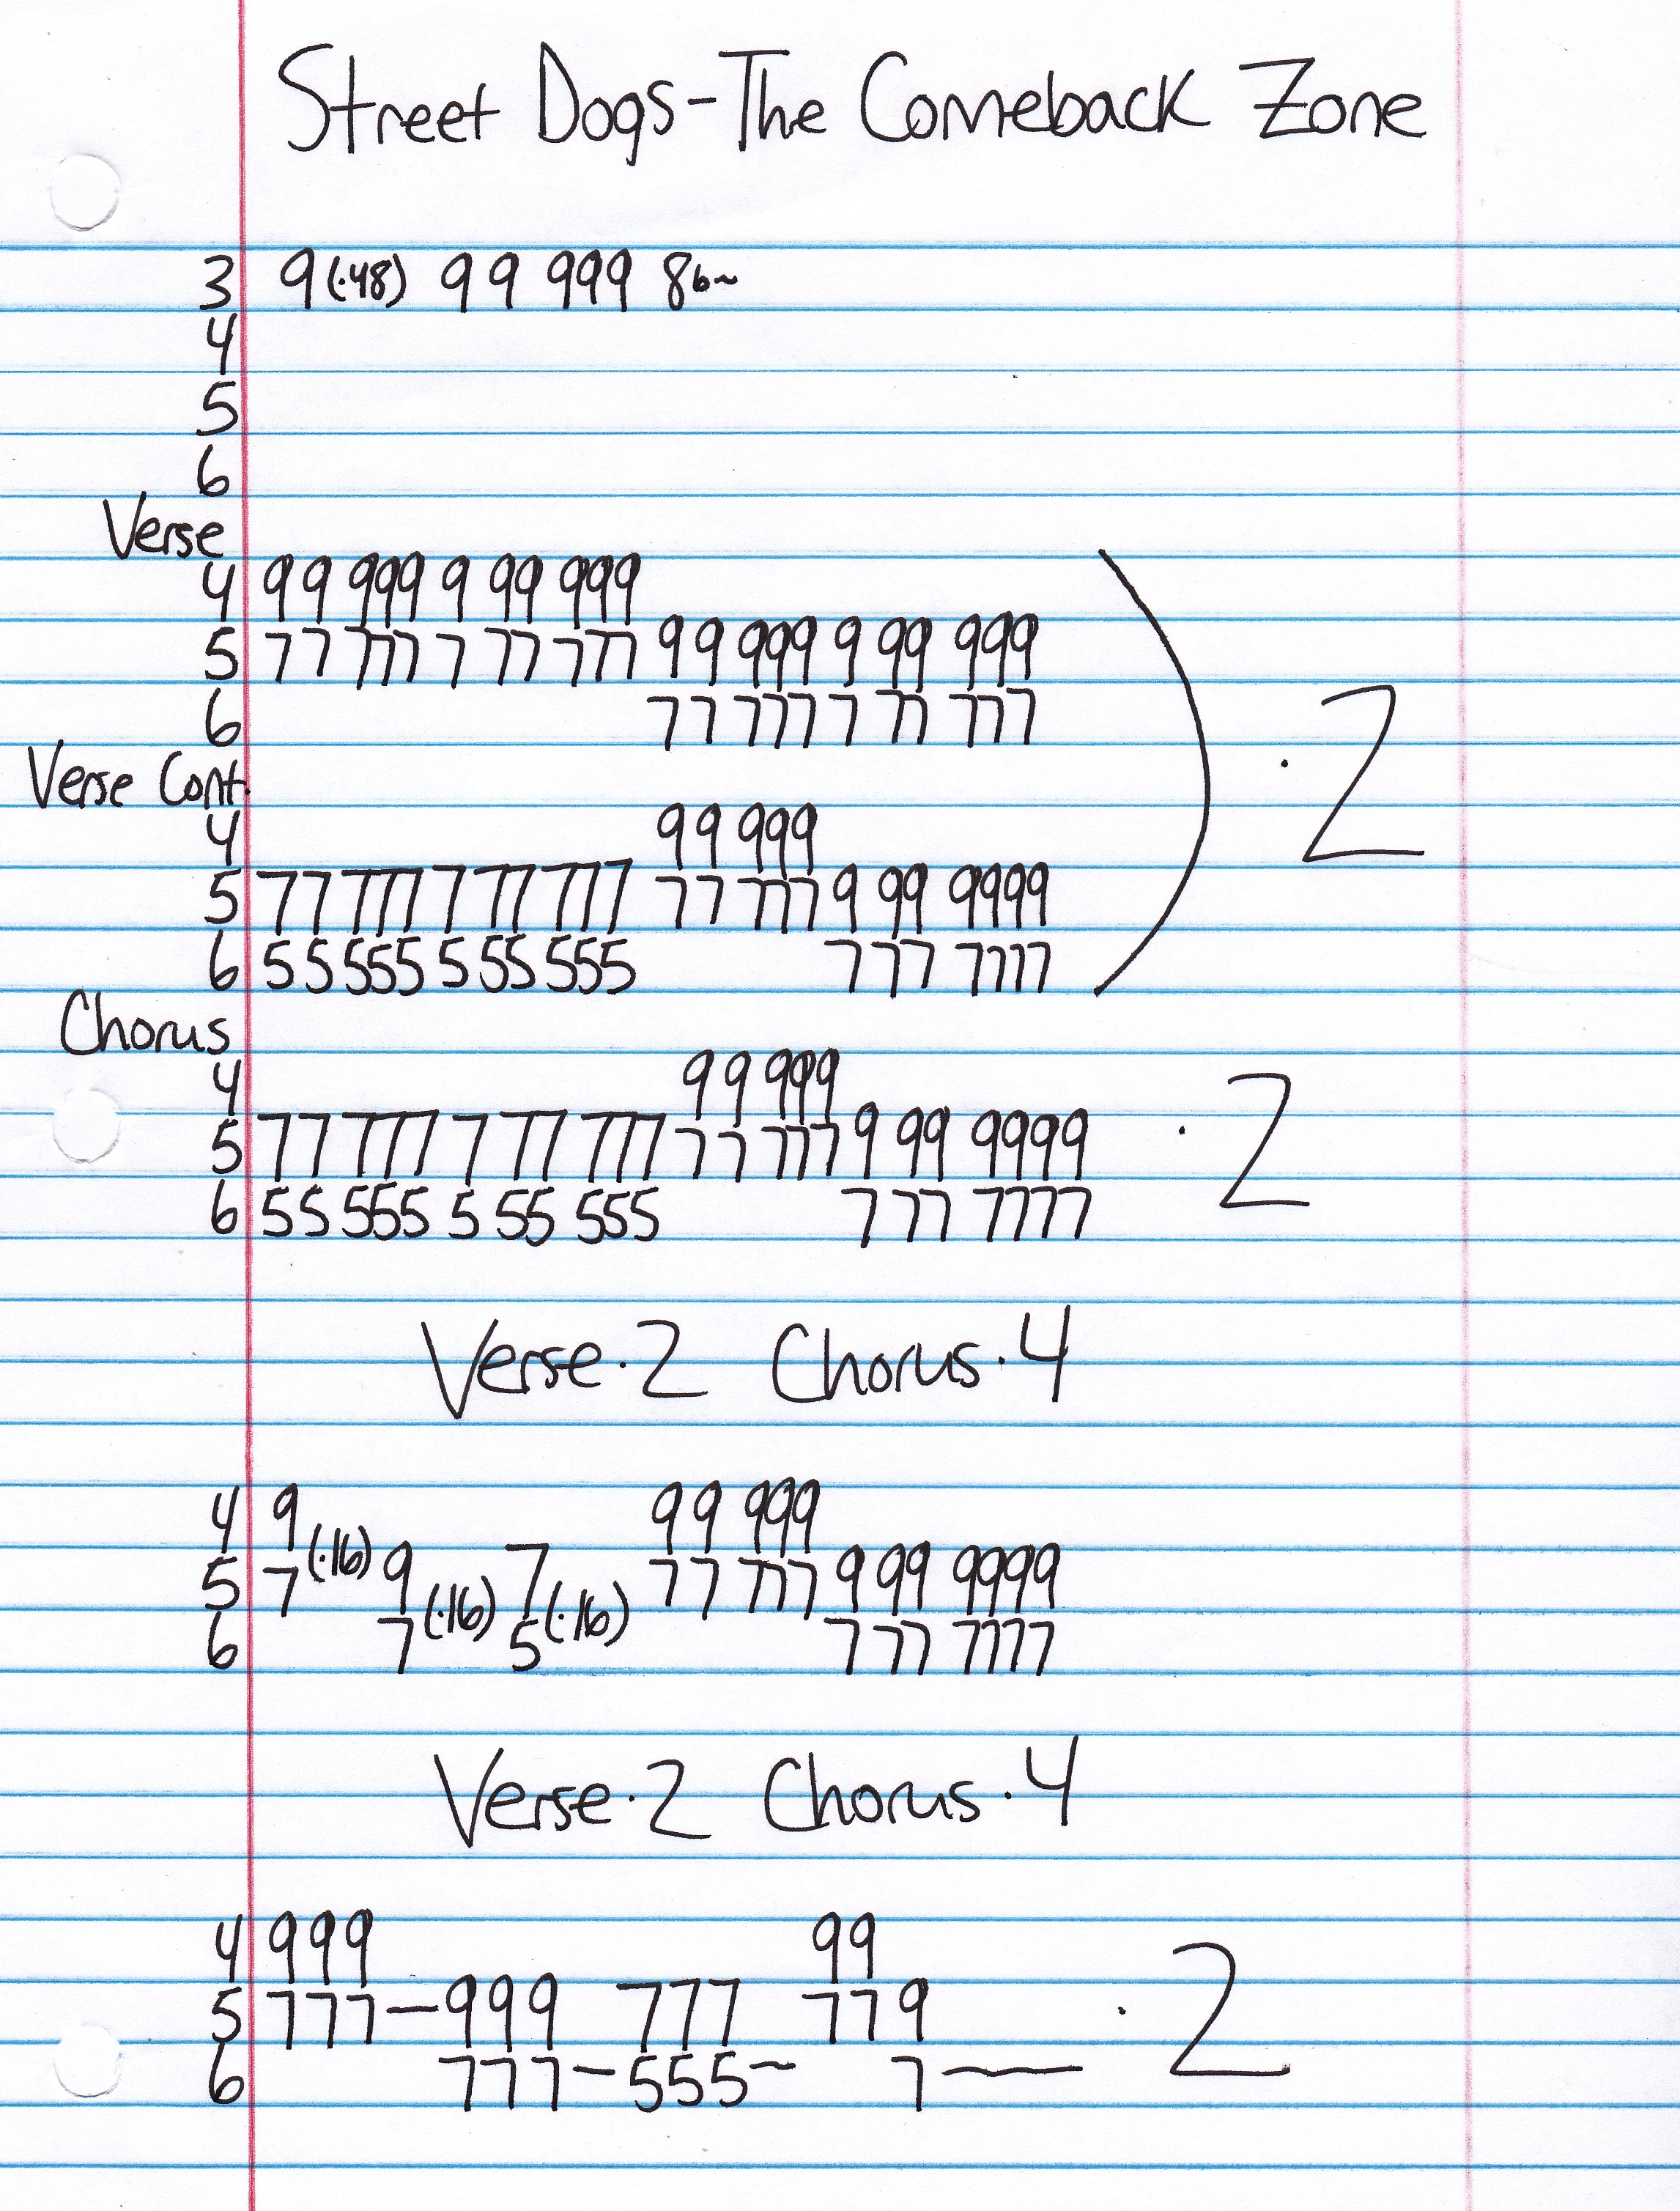 Street Dogs-The Comeback Zone
3 9(·48) 99 999 86~
4
5
6
Verse
4 99 999 9 99 999
5 77 777 7 77 777 99 999 9 99 999
6 77 777 7 77 777
· 2
Verse Cont.
4 99 999
5 77 777 7 77 777 77 777 9 99 9999
6 55 555 5 55 555 7 77 7777
Chorus
4 99 999
5 77 777 7 77 777 77 777 9 99 9999
6 55 555 5 55 555 7 77 7777
· 2
Verse·2 Chorus·4
4 9 99 999
5 7(·16) 9 7 77 777 9 99 9999
6 7(·16) 5(·16) 7 77 7777
Verse·2 Chorus·4
4 999 99
5 777—999 777 779
6 777—555~ 7——
· 2